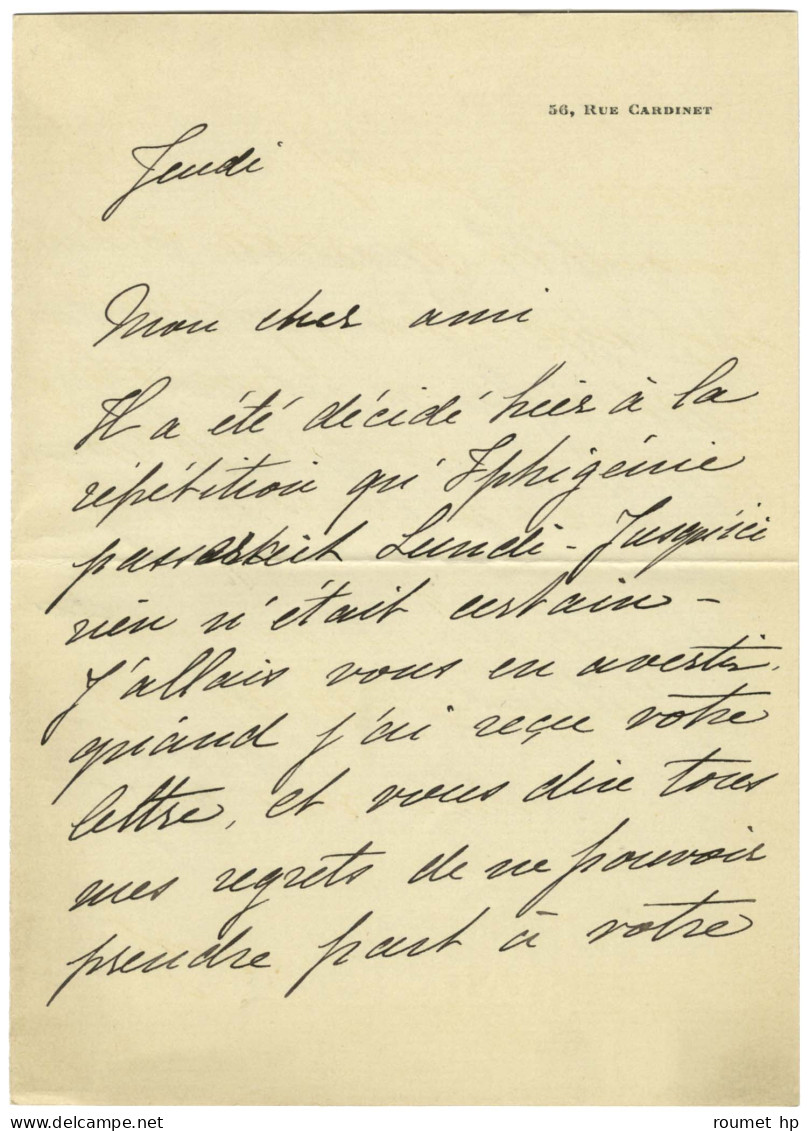 56, Rue Cardinet
Jeudi
Mon cher ami
Il a été décidé hier à la
répétition qu'Iphigénie
passerait Lundi - Jusqu'ici
rien n'était certain -
J'allais vous en avertir
quand j'ai reçu votre
lettre, et vous dire tous
mes regrets de ne pouvoir
prendre part à votre
© roumet hp